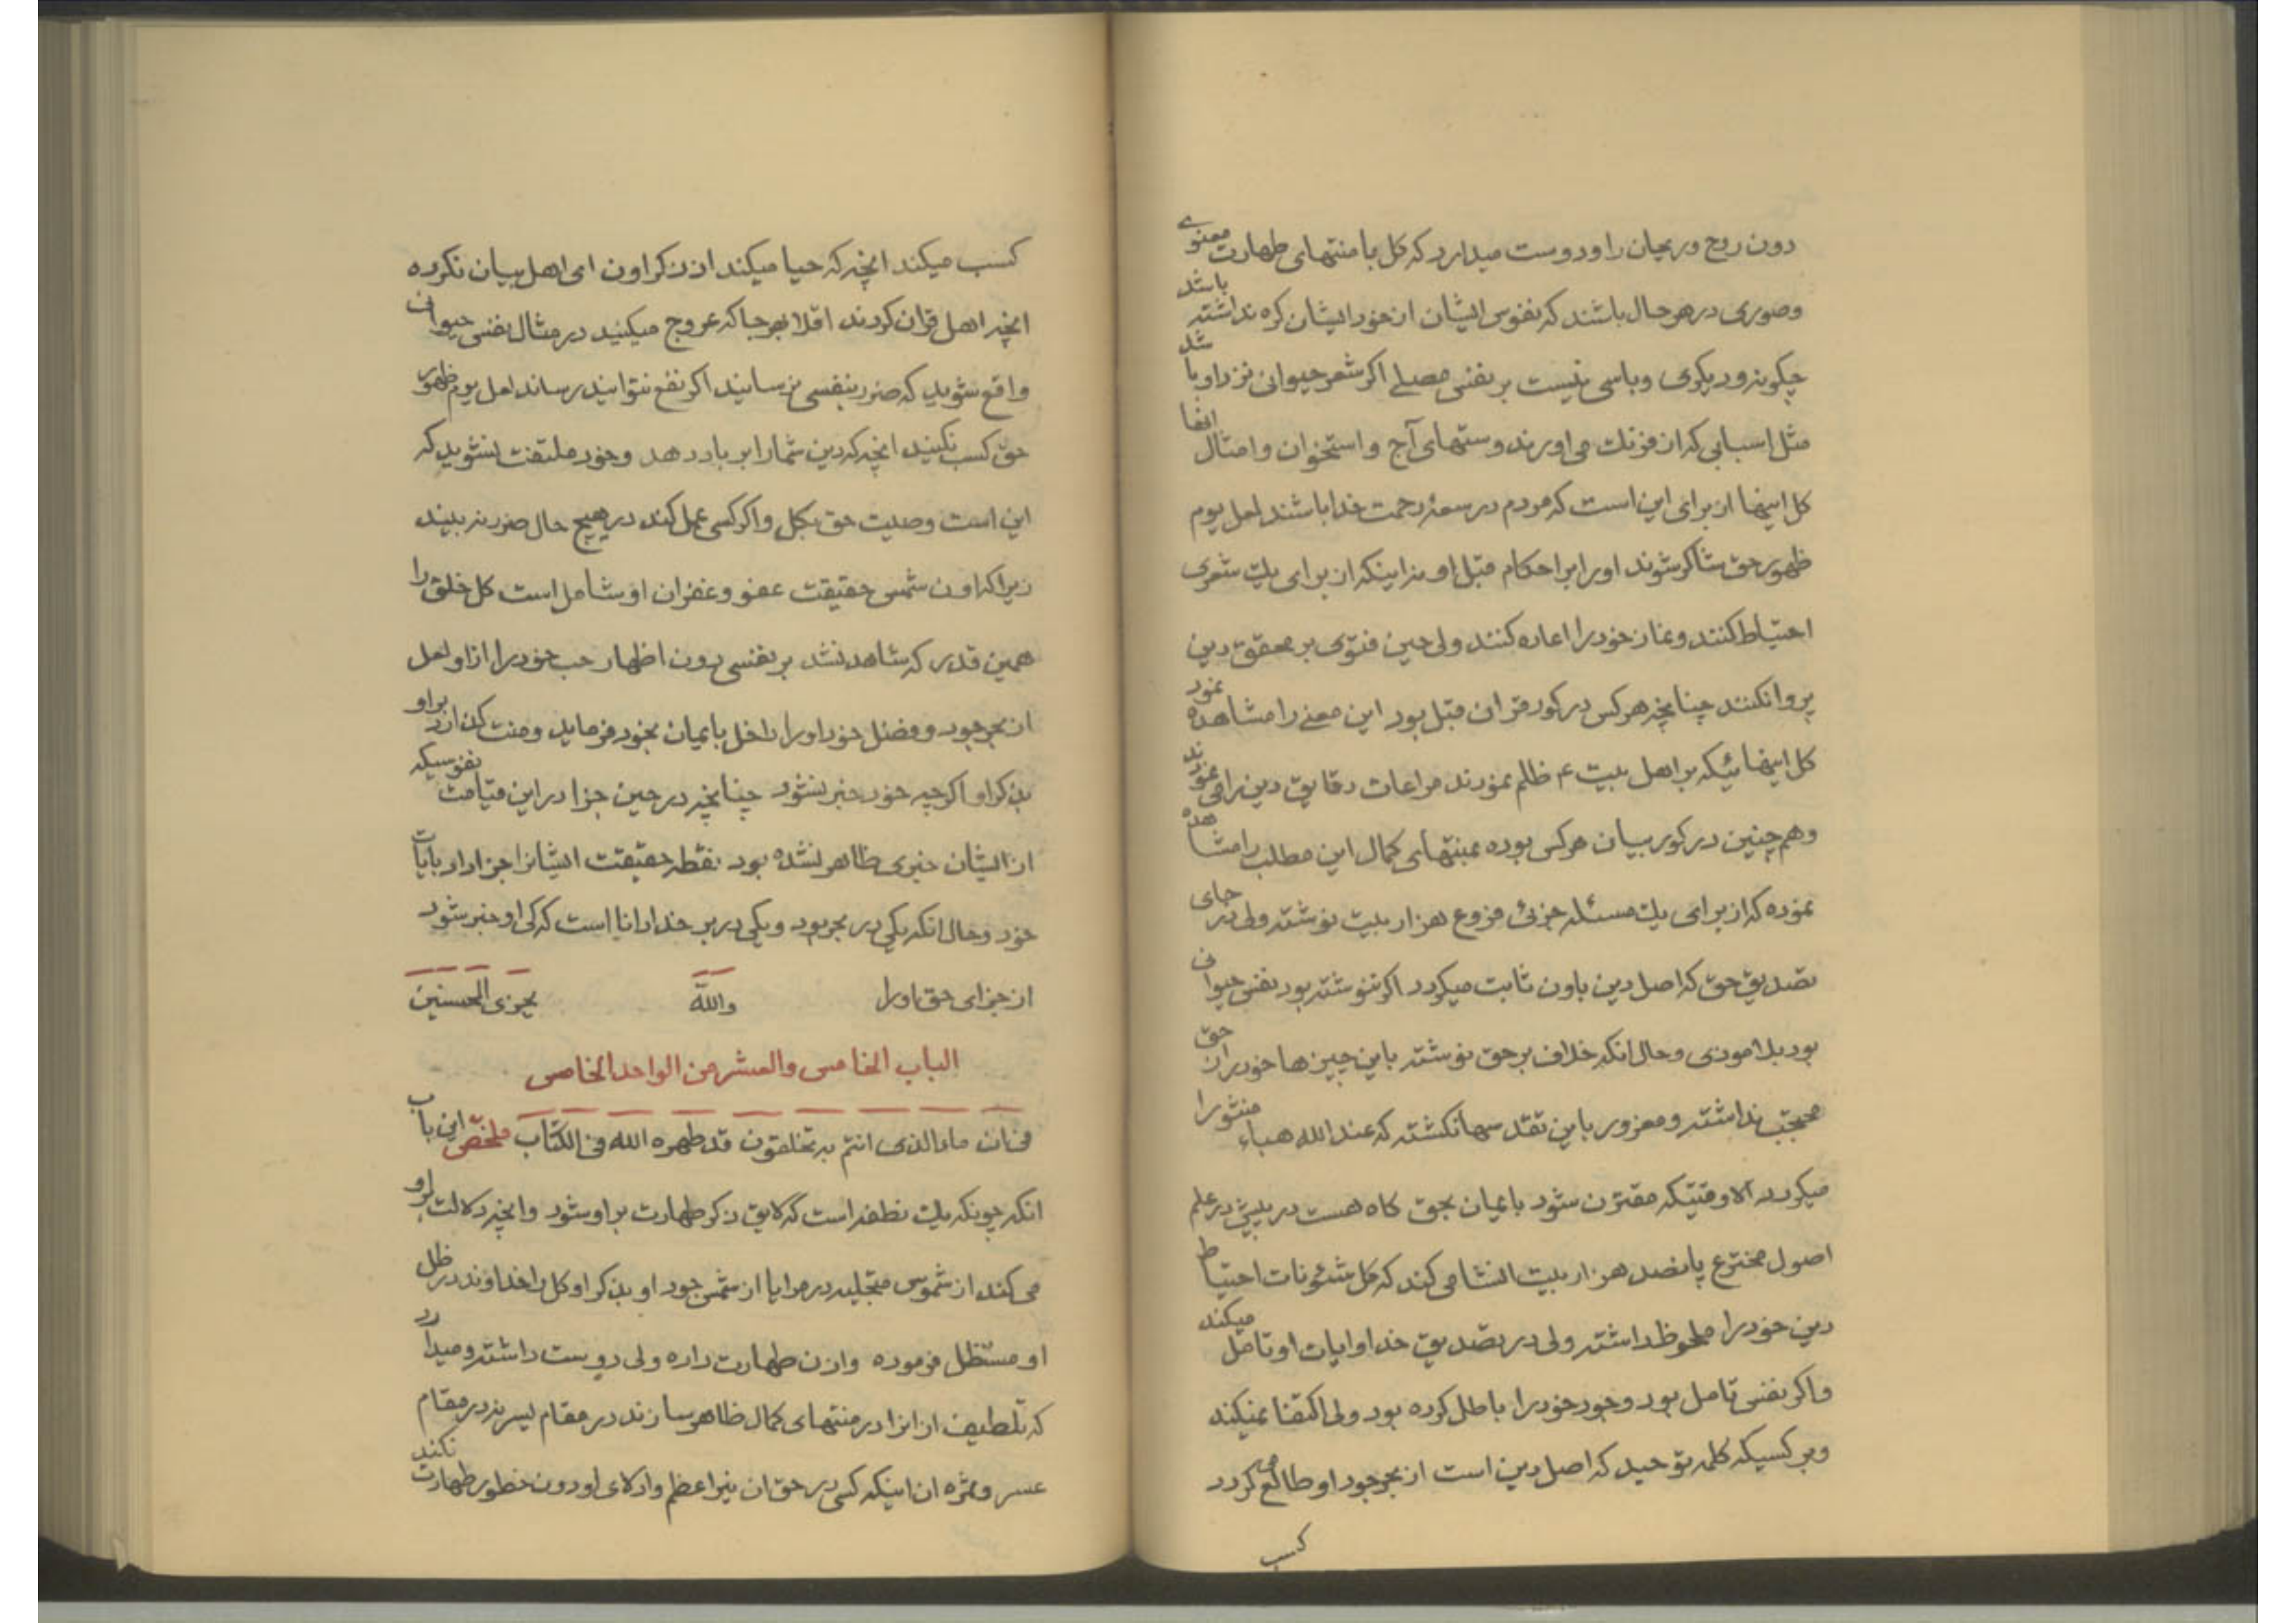 دون روح و ریحان را و دوست میدارد که کل با منتهای طهارت معنوی
وصوری در هر حال باشند که نفوس ایشان از خود ایشان کره نداشته باشد
چگونه و دیگری وباسی نیست بر نفس مصلی اکر شعر حیوانی نزد او باشد
مثل اسبابی که از فرنك می اورند و ستهای آج و استخوان وامثال انها
کل اینها از برای این است که مردم در سعهٔ رحمت خدا باشند لعل یوم
ظهور حق شاکر شوند اورا بر احکام قبل او نه اینکه از برای یك شعری
احتیاط کنند و نماز خود را اعاده کنند ولی حین فتوی بر محقق دین
پروا نکنند چنانچه هر کس در کور قران قبل بود این معنی را مشاهده نمود
کل اینهائیکه بر اهل بیت ع ظلم نمودند مراعات دقایق دین را می نمودند
وهم چنین در کور بیان هر کس بوده بمنتهای کمال این مطلب را مشاهده
نموده که از برای یك مسئله جزئی فروع هزار بیت نوشته ولی در جای
تصدیق حق که اصل دین باون ثابت میکردد اکر ننوشته بود نفس حیوان
بود بلا موذی و حال انکه خلاف بر حق نوشته باین چیزها خود را از حق
محتجب نداشته و مغرور باین تقدسها نکشته که عند الله هباء منثورا
میکردد الا وقتیکه مقترن شود بایمان بحق کاه هست در بیتی در علم
اصول مخترع پانصد هزار بیت انشا می کند که کل شئونات احتیاط
دین خود را ملحوظ داشته ولی در تصدیق خدا و ایات او تامل میکند
واکر نفس تامل بود وجود خود را باطل کرده بود ولی اکتفا نمیکند
وبر کسیکه کلمه توحید که اصل دین است از بحر جود او طالع می کردد
کسب
کسب میکند انچه که حیا میکند از ذکر اون ای اهل بیان نکرده
انچه اهل قران کردند اقلا بهر جا که عروج میکنید در مثال نفس حیوان
واقع شوید که ضرر بنفسی نرسانید اکر نفع نتوانید رساند لعل یوم ظهور
حق کسب نکنید انچه که دین شما را بر باد دهد وخود ملتفت نشوید که
این است وصیت حق بکل واکر کسی عمل کند در هیچ حال ضرر نه بیند
زیرا که اون شمس حقیقت عفو وغفران او شامل است کل خلق را
همین قدر که شاهد نشد بر نفسی دون اظهار حب خود را از او لعل
از بحر جود و فضل خود اورا داخل بایمان بخود فرماید ومنت کذارد بر او
بذکر او اکر چه خود خبر نشود چنانچه در حین جزا در این قیامت نفوسیکه
از ایشان خبری ظاهر نشده بود نقطه حقیقت ایشانرا جزا داد بایات
خود و حال انکه یکی در بحر بود و یکی در بر خدا دانا است که کی او خبر شود
از جزای حق اورا والله یجزی المحسنین
الباب الخامس والعشر من الواحد الخامس
فی ان ماء الذی انتم به تخلقون قد طهره الله فی الکتاب ملخص این باب
انکه چونکه یك نطفه است که لایق ذکر طهارت بر او شود وانچه دلالت بر او
می کند از شموس متجلیه در مرایا از شمس جود او بذکر او کل را خداوند در ظل
او مستظل فرموده واذن طهارت داده ولی دوست داشته و میدارد
که تلطیف از انرا در منتهای کمال ظاهر سازند در مقام یسر نه در مقام
عسر وثمره ان اینکه کسی در حق ان نیر اعظم وادلای او دون خطور طهارت نکند